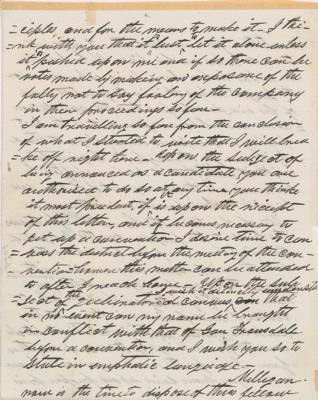 =ciples, and for the means to make it. I thi-
nk with you that it is best to let it alone unless
it is pushed upon me and if so there can be
votes made by making an exposure of the
folly not to say of the company
in their proceedings so far—
I am travelling so far from the conclusion
of what I started to write that I will brea
=ke off right here— Upon the subject of
being announced as a candidate you are
authorised to do so at any time you think
it most prudent, if it is upon the receipt
of this letter, and if it becomes necessary to
get up a convention I desire time to can=
=vass the district before the meeting of the con=
vention
to after I reach home. Upon the sub=
=ject of the Gubernatorial canvass, I wish it distinctly understood that
in no event can my name be brought
in conflict with that of Gov Trousdale
before a convention, and I wish you so to
state in emphatic language—
Milligan
now is the time to dispose of this fellow